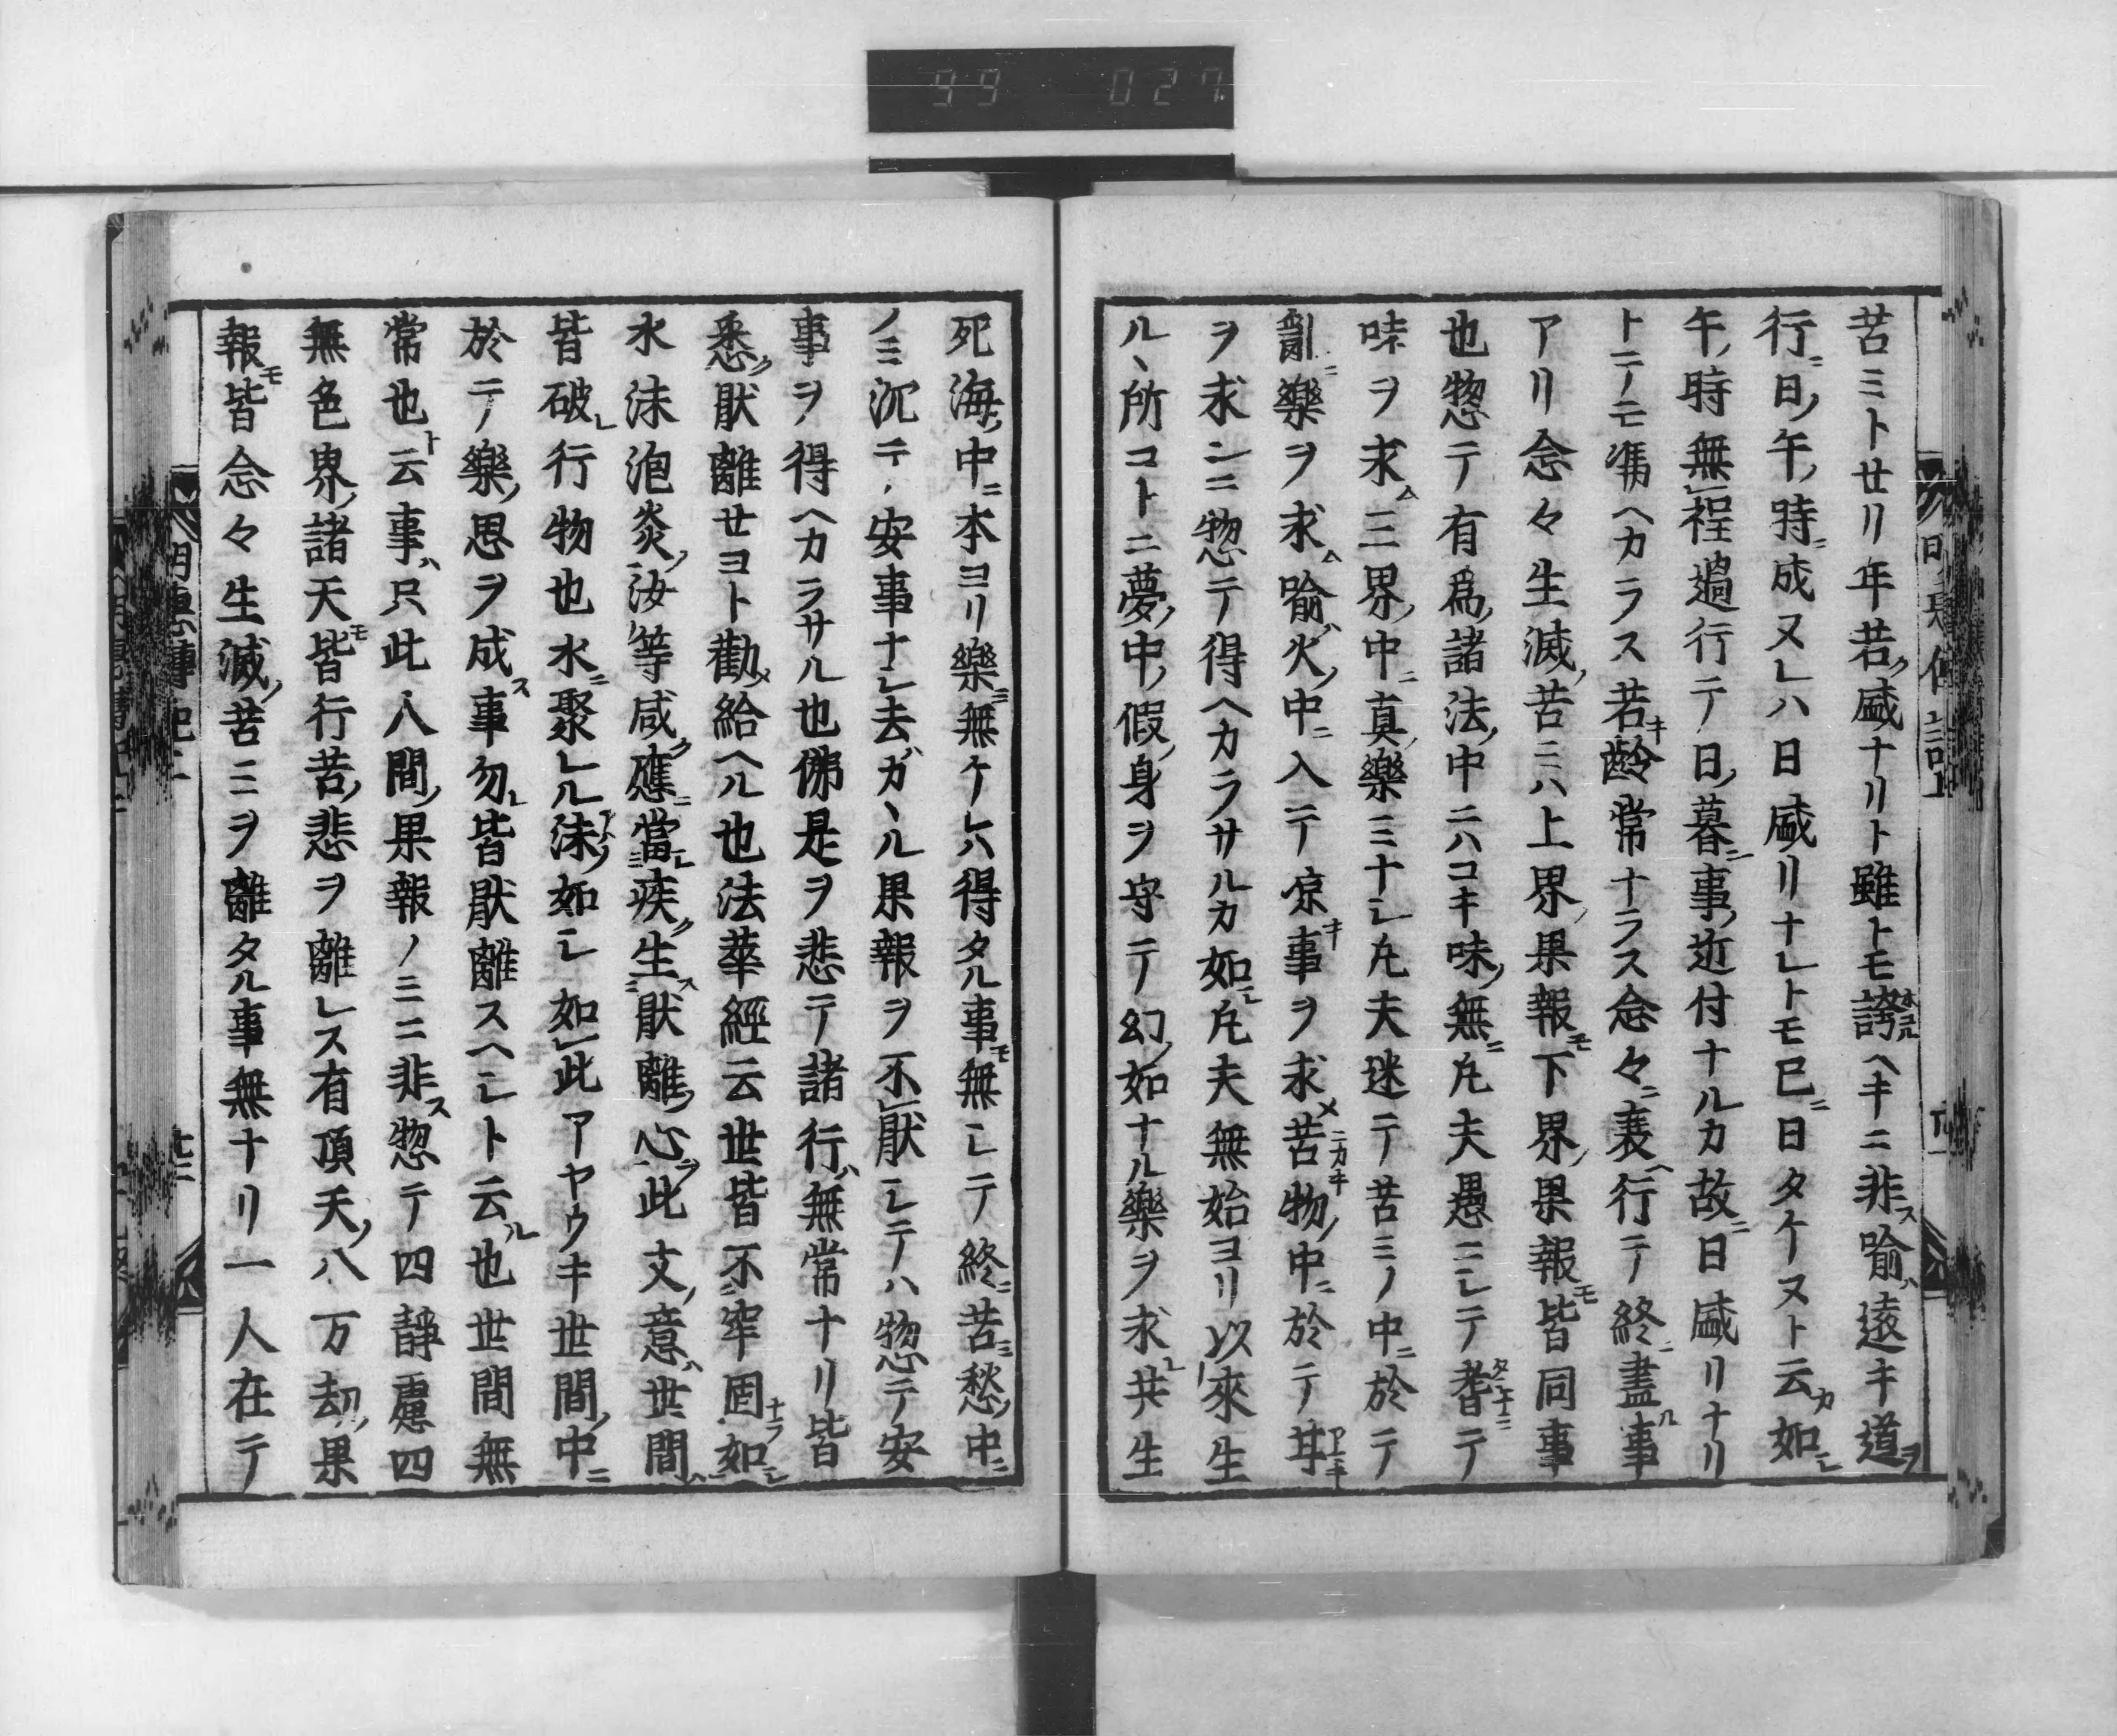 99 027
苦ミト廿リ年若ノ盛ナリト雖トモ誇ホコルヘキニ非ス喩ハ遠キ道ヲ
行ニ日ノ午ノ時ニ成ヌレハ日盛リナレトモ已ニ日タケヌト云カ如シ
午ノ時無程過行テ日ノ暮ニ事ノ近付ナルカ故ニ日盛リナリ
トテモ馮ヘカラス若キ齢常ナラス念々ニ衰ヘ行テ終ニ盡ル事
アリ念々生滅ノ苦ニハ上界ノ果報モ下界ノ果報モ皆同事
也惣テ有爲ノ諸法ノ中ニハコキ味ノ無ニ凡夫愚ニシテ耆テ
味ヲ求ム三界ノ中ニ真ノ樂ミナシ凡夫迷テ苦ミノ中ニ於テ
亂ニ樂ヲ求ム喩ハ火ノ中ニ入テ凉キ事ヲ求メ苦ニカキ物ノ中ニ於テ甘アマキ
ヲ求ンニ惣テ得ヘカラサルカ如シ凡夫無始ヨリ以來生
ルヽ所コトニ夢ノ中ノ假ノ身ヲ守テ幻ノ如ナル樂ヲ求レ共生
死海ノ中ニ本ヨリ樂ミ無ケレハ得タル事モ無シテ終ニ苦ミ愁ノ中ニ
ノミ沉テ安事ナシ去ハカヽル果報ヲ不厭シテハ惣テ安
事ヲ得ヘカラサル也佛是ヲ悲テ諸行ハ無常ナリ皆
悉ク厭離セヨト勸メ給ヘル也法華經云世皆不牢固ナラ如
水沫泡炎ノ汝等咸ク應當ニ疾ク生ス厭離ノ心ヲ此文ノ意ハ世間ハ
皆破レ行物也水ニ聚レル沫アワノ如シ如此アヤウキ世間ノ中ニ
於テ樂ノ思ヲ成ス事勿レ皆厭離スヘシト云ル也世間無
常也ト云事ハ只此人間ノ果報ノミニ非ス惣テ四靜慮四
無色界ノ諸天モ皆行苦ノ悲ヲ離レス有頂天ノ八万劫ノ果
報モ皆念々生滅ノ苦ミヲ離タル事無ナリ一人在テ